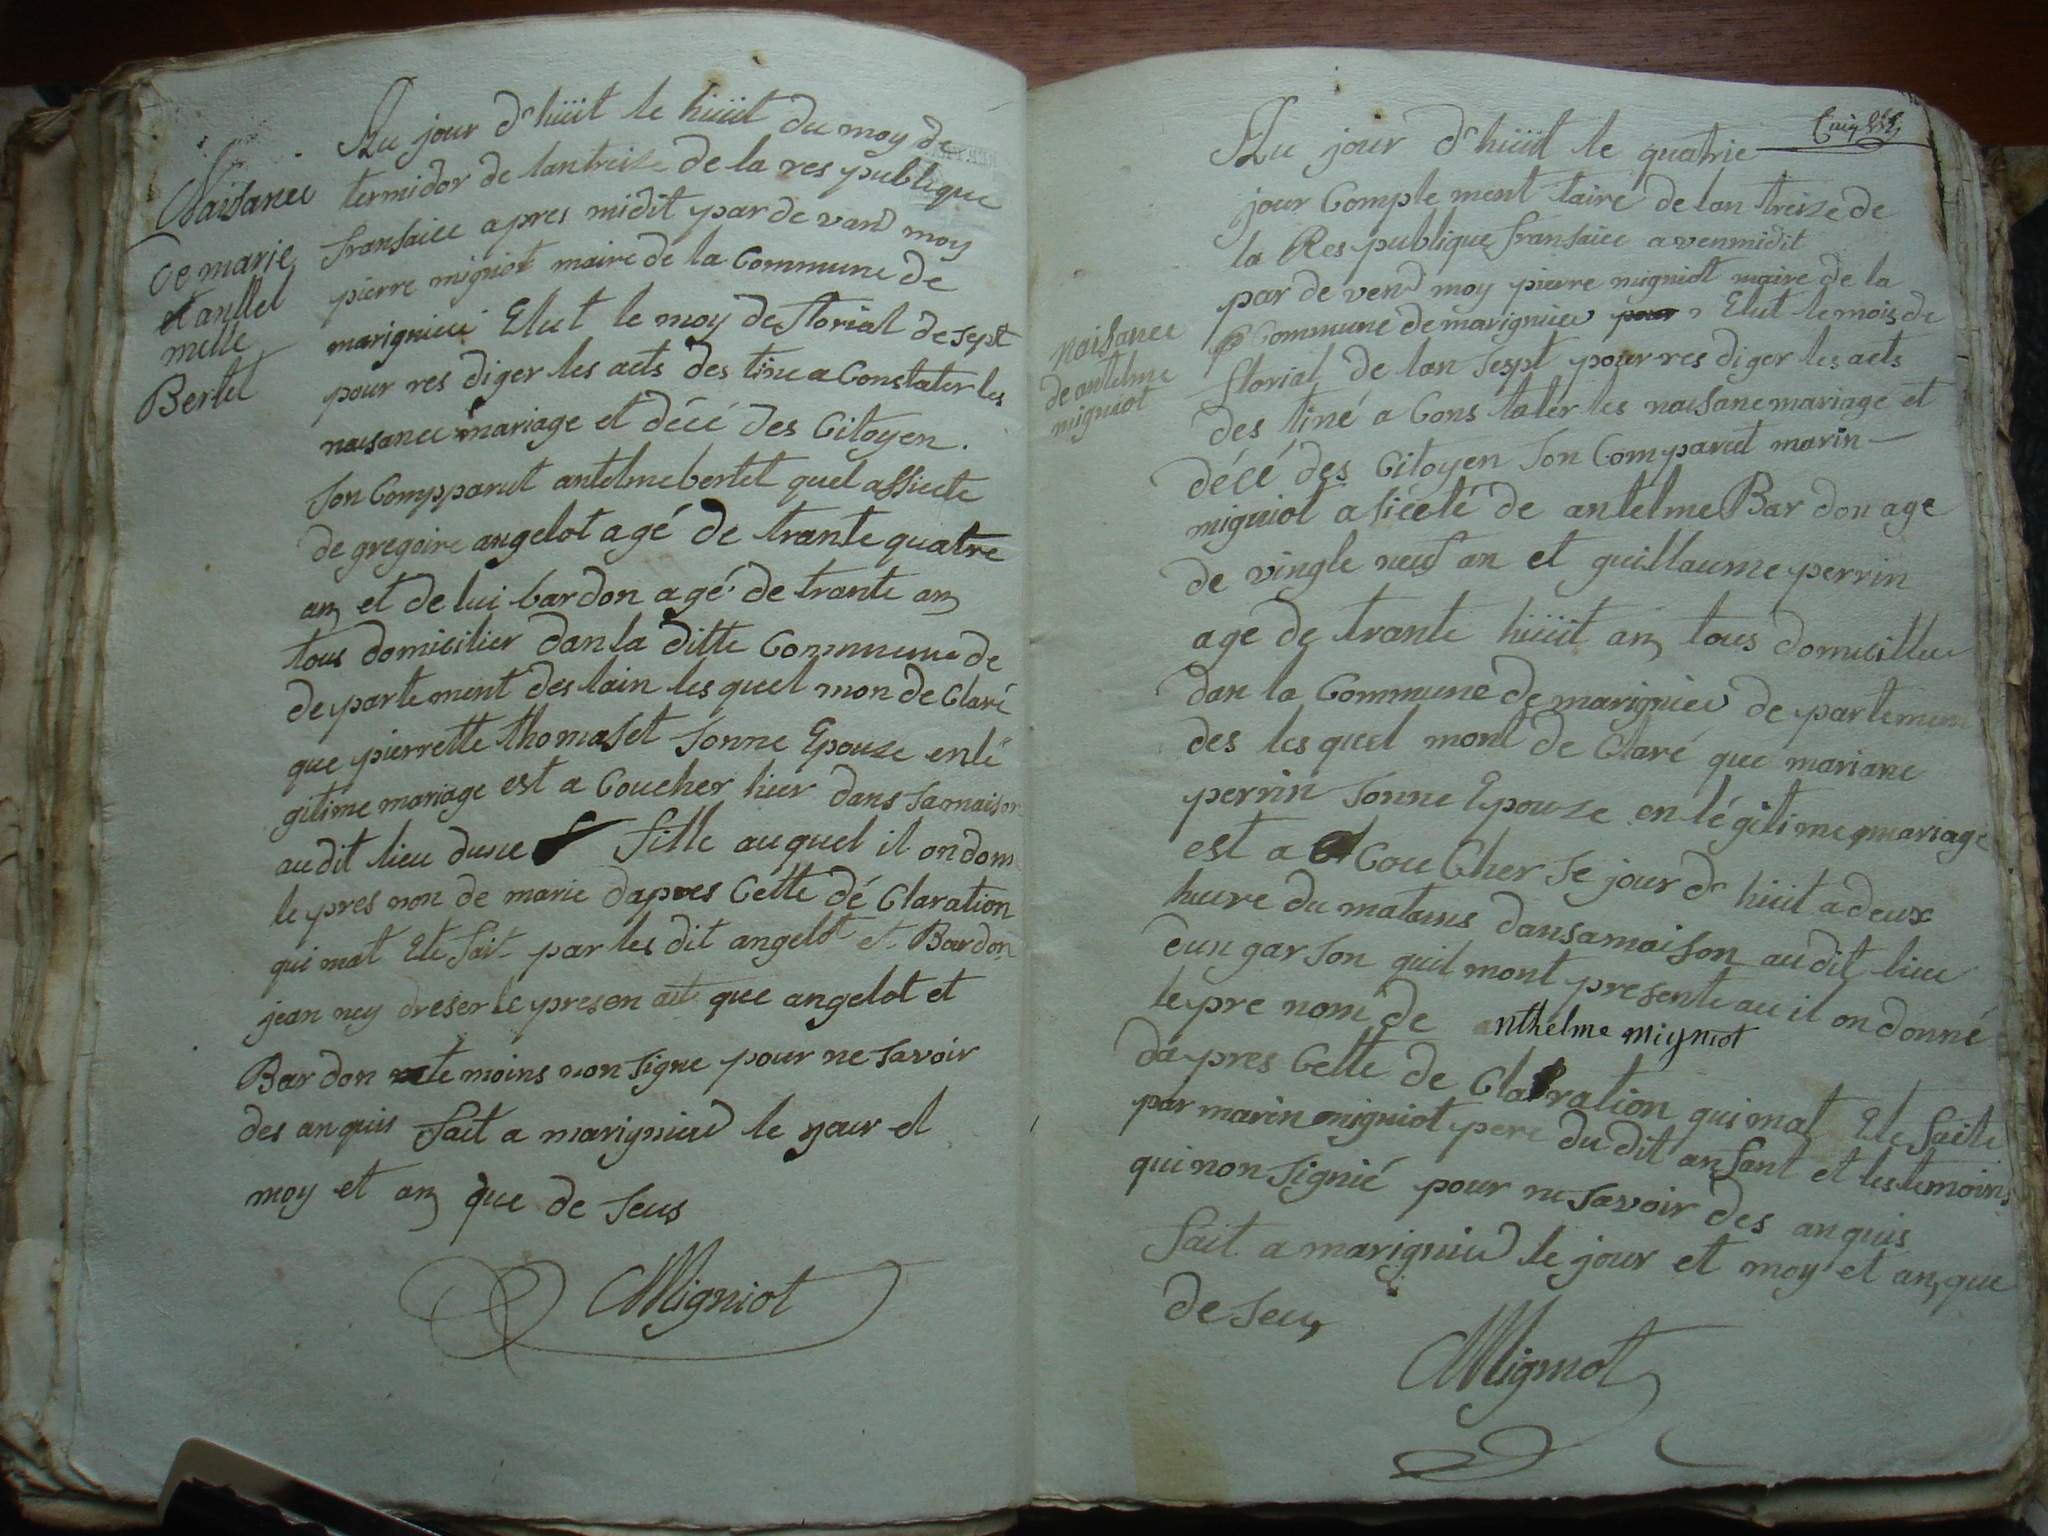 Naisance
de marie
et antel
melle
Bertet
Au jour d'hüit le hüit du moy de
termidor de lantreize de la res publique
fransaice apres midit par de vand moy
pierre migniot maire de la Commune de
marignieu Elut le moy de florial de sept
pour res diger les acts des tine a Constater les
naisance mariage et décé des Citoyen.
son Comparut antelme bertet quel assicte
de gregoire angelot agé de trante quatre
an et de lui bardon agé de trante an
tous domicilier dan la ditte Commune de
de parte ment des lain les quel mon de Claré
que pierrette thomaset sonne Epouze en lé
gitime mariage est a Coucher hier dans sa maison
au dit lieu dune fille au quel il on donn
le pres non de marie dapres Cette dé Claration
qui mat Ete fait par les dit angelot et Bardon
jean ney dreser le presen act que angelot et
Bardon temoins non signe pour ne savoir
des an quis fait a marignieu le jour et
moy et an que de seus
Migniot
Au jour d'hüit le quatrie
jour Comple ment taire de lan treize de
la Res publique fransaice avenmidit
par de vend moy pierre migniot maire de la
Commune de marignieu Elut le mois de
florial de lan sept pour res diger les acts
des tiné a Cons tater les naisane mariage et
décé des Citoyen son Comparut marin
migniot a siceté de antelme Bardon age
de vingte neuf an et guillaume perrin
age de trante hüit an tous domicillieu
dan la Commune de marignieu de partement
des les quel mont de Claré que mariane
perrin sonne Epouze en légitime mariage
est a Cou Cher se jour d' huit a deux
heure du matains dansamaison au dit lieu
dun garson quil mont presente au il on donné
le pre nom de anthelme migniot
dapres Cette de Claration qui mat Ete faite
par marin migniot pere du dit anfant et les temoins
qui non signié pour ne savoir des an quis
fait a marignieu le jour et moy et an que
de seus
Migniot
naisance
de antelme
migniot